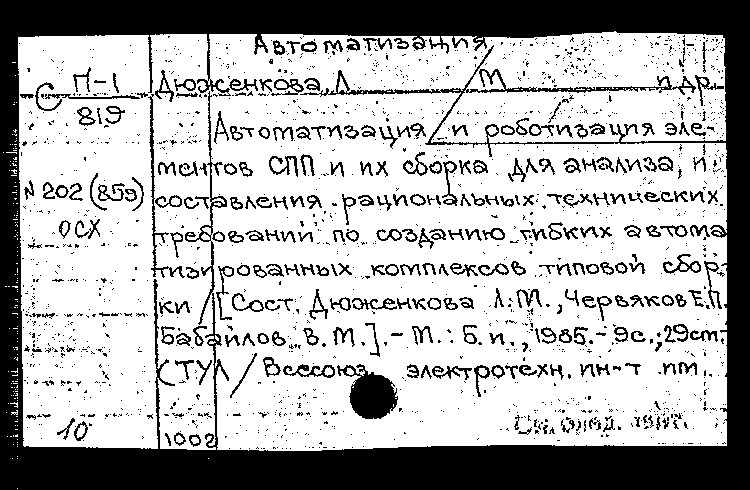 Автоматизация
С П-1
819
Дюженкова Л М и др.
Автоматизация и роботизация эле-
ментов СПП и их сборка для анализа, и
N 202 (859) составления рациональных технических
ОСХ требований по созданию гибких автома
тизированных комплексов типовой сбор
ки / [Сост. Дюженкова Л.М., Червяков Е.П.
Бабайлов В.М.]. - М.: Б.и., 1985. - 9с.; 29см.
(СТУЛ / Всесоюз. электротехн. ин-т им.
10 1002 См. след. карт.